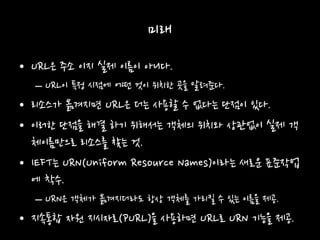 미래
• URL은 주소 이지 실제 이름이 아니다.
– URL이 특정 시점에 어떤 것이 위치한 곳을 알려준다.
• 리소스가 옮겨지면 URL은 더는 사용할 수 없다는 단점이 있다.
• 이러한 단점을 해결 하기 위해서는 객체의 위치와 상관없이 실제 객
체이름만으로 리소스를 찾는 것.
• IEFT는 URN(Uniform Resource Names)이라는 새로운 표준작업
에 착수.
– URN은 객체가 옮겨지더라도 항상 객체를 가리킬 수 있는 이름을 제공.
• 지속통합 자원 지시자로(PURL)을 사용하면 URL로 URN 기능을 제공.